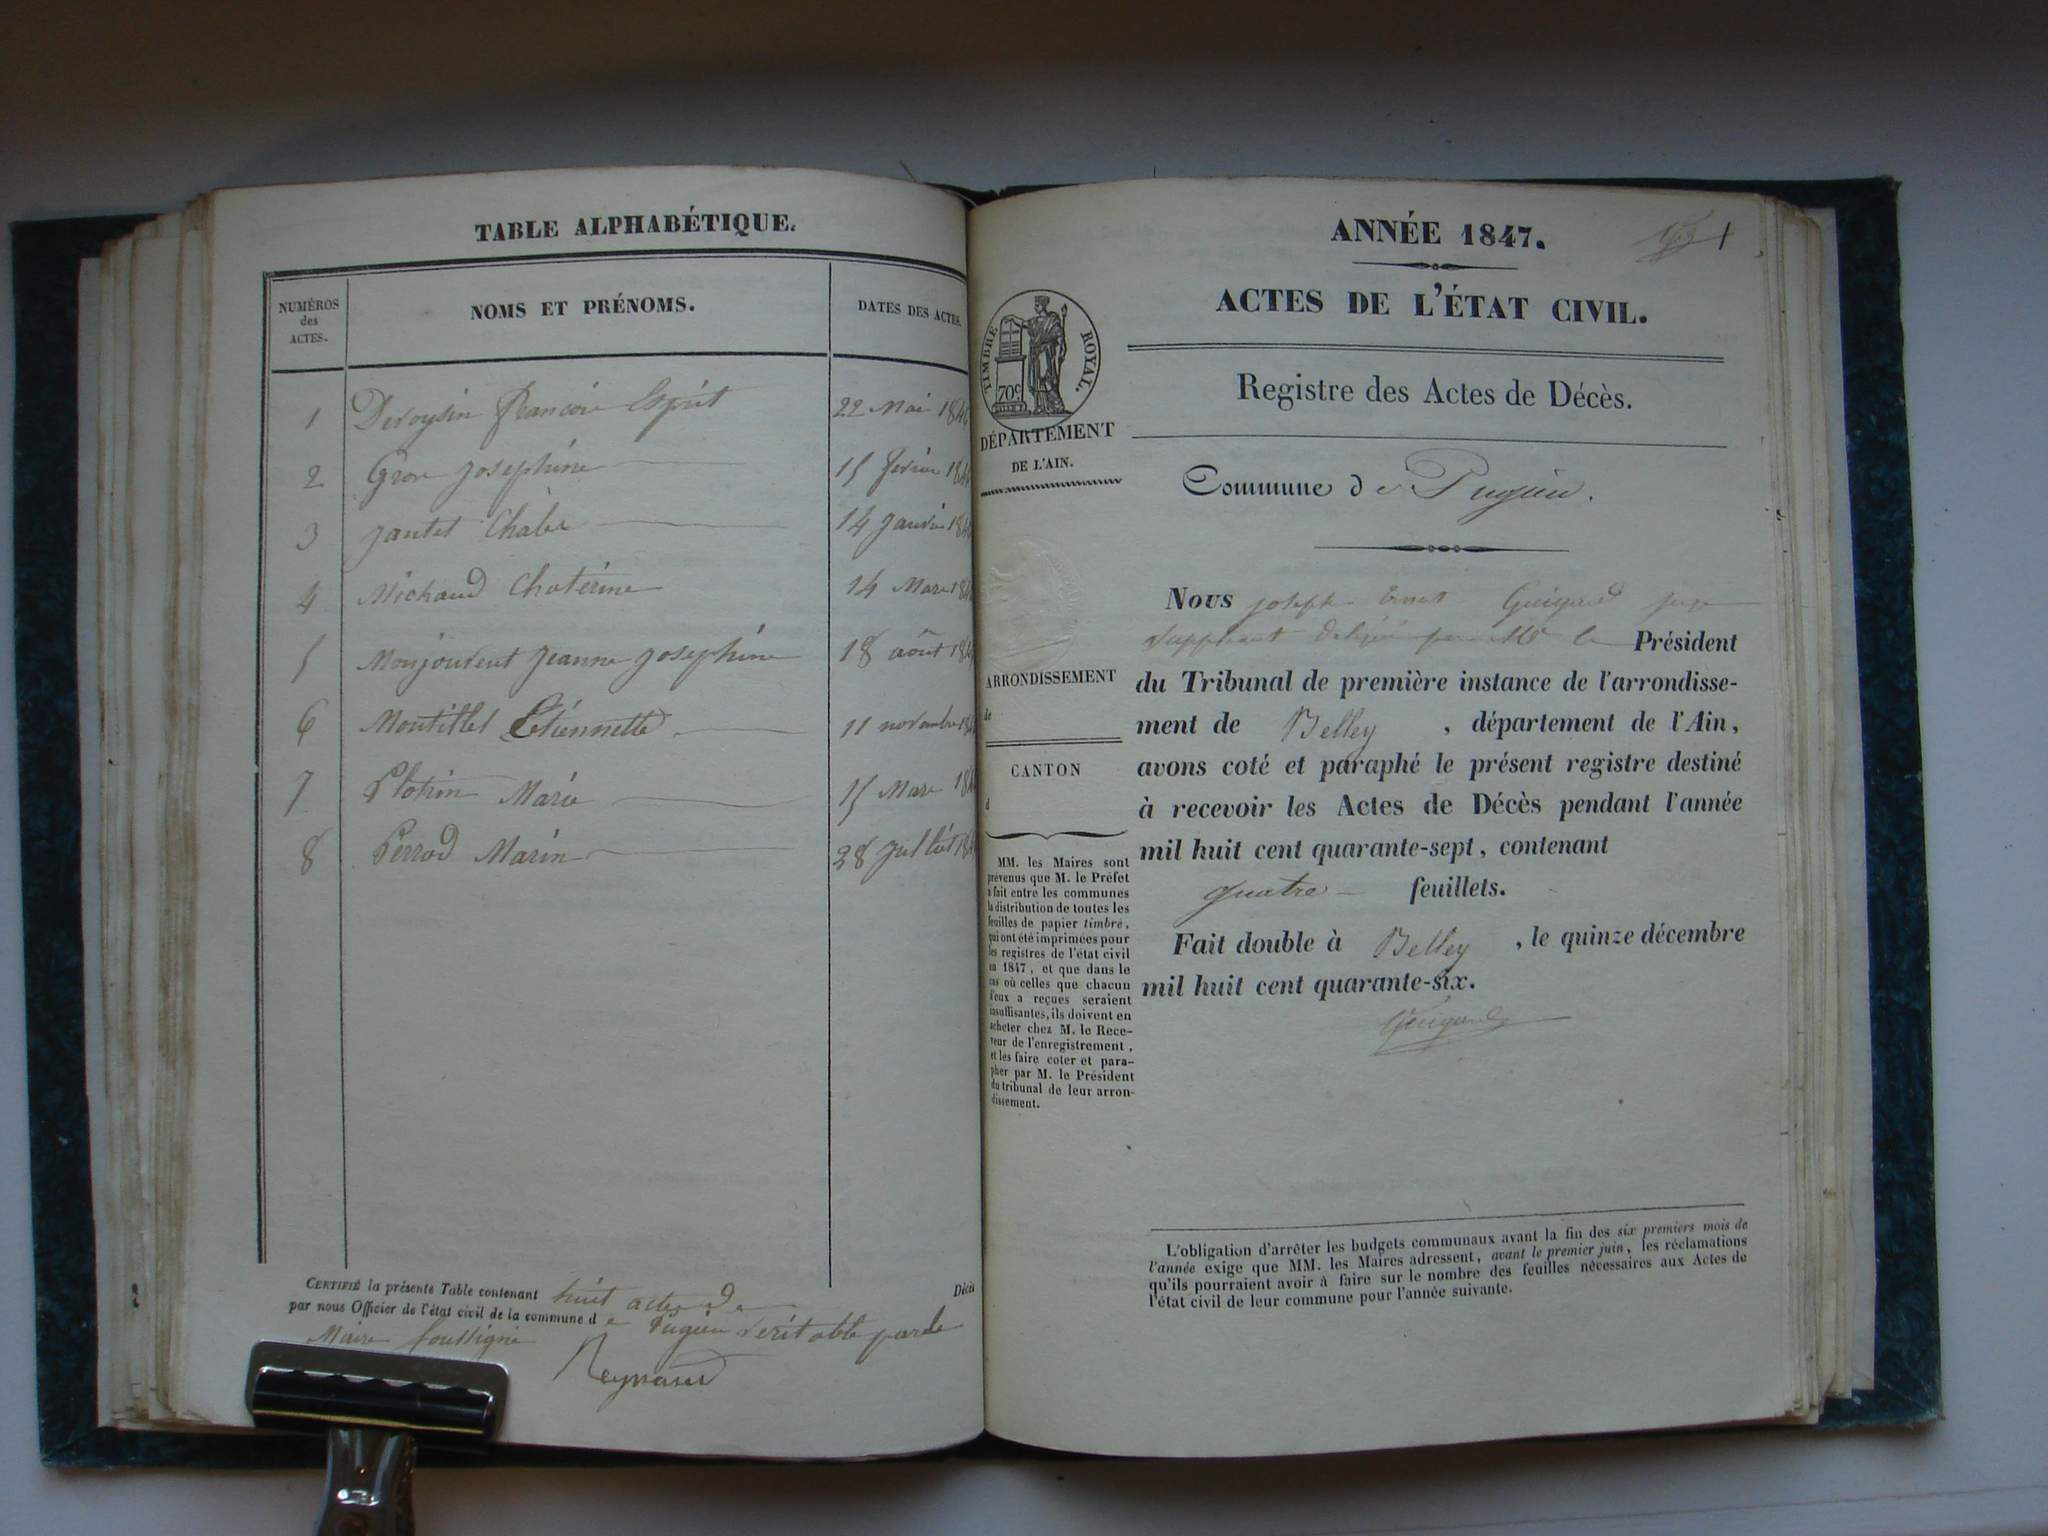 TABLE ALPHABÉTIQUE.
NUMÉROS
des
ACTES.
NOMS ET PRÉNOMS.
DATES DES ACTES.
1 Françoi Esprit 22 Mai
2 Josephine 15
3 Jantet 14 Janvier
4 Michaud Chaterine 14 Mars
5 Monjouvent Jeanne Josephine 18 août
6 Montillet Etiennette 11 novembre
7 Marie 15 Mars
8 Perrod Marin 28
CERTIFIÉ la présente Table contenant huit actes de Décès
par nous Officier de l'état civil de la commune de Pugieu veritable par le
Maire soussigné
Reynaud
ANNÉE 1847.
1
ACTES DE L'ÉTAT CIVIL.
TIMBRE ROYAL.
70c
Registre des Actes de Décès.
DÉPARTEMENT
DE L'AIN.
Commune de Pugieu.
ARRONDISSEMENT
de
CANTON
d
MM. les Maires sont
prévenus que M. le Préfet
a fait entre les communes
la distribution de toutes les
feuilles de papier timbré,
qui ont été imprimées pour
les registres de l'état civil
en 1847, et que dans le
cas où celles que chacun
d'eux a reçues seraient
insuffisantes, ils doivent en
acheter chez M. le Rece-
veur de l'enregistrement,
et les faire coter et para-
pher par M. le Président
du tribunal de leur arron-
dissement.
Nous joseph Ernest Guigard juge
suppléant délégué par Mr le Président
du Tribunal de première instance de l'arrondisse-
ment de Belley, département de l'Ain,
avons coté et paraphé le présent registre destiné
à recevoir les Actes de Décès pendant l'année
mil huit cent quarante-sept, contenant
quatre feuillets.
Fait double à Belley, le quinze décembre
mil huit cent quarante-six.
Guigard
L'obligation d'arrêter les budgets communaux avant la fin des six premiers mois de
l'année exige que MM. les Maires adressent, avant le premier juin, les réclamations
qu'ils pourraient avoir à faire sur le nombre des feuilles nécessaires aux Actes de
l'état civil de leur commune pour l'année suivante.